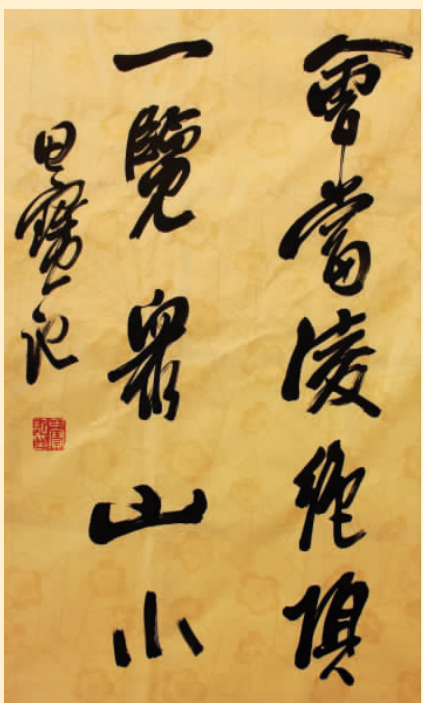 會當凌絕頂
一覽眾山小
田